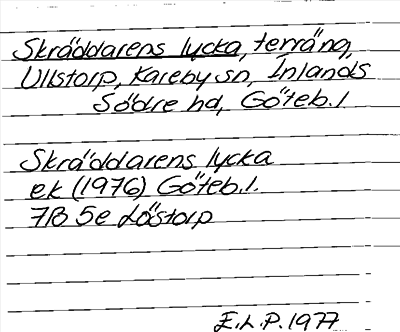 Skräddarens lycka, terräng,
Ullstorp, Kareby sn, Inlands
Södre hd, Göteb. l
Skräddarens lycka
ek (1976) Göteb. l.
7B 5e Löstorp
E.L.P. 1977